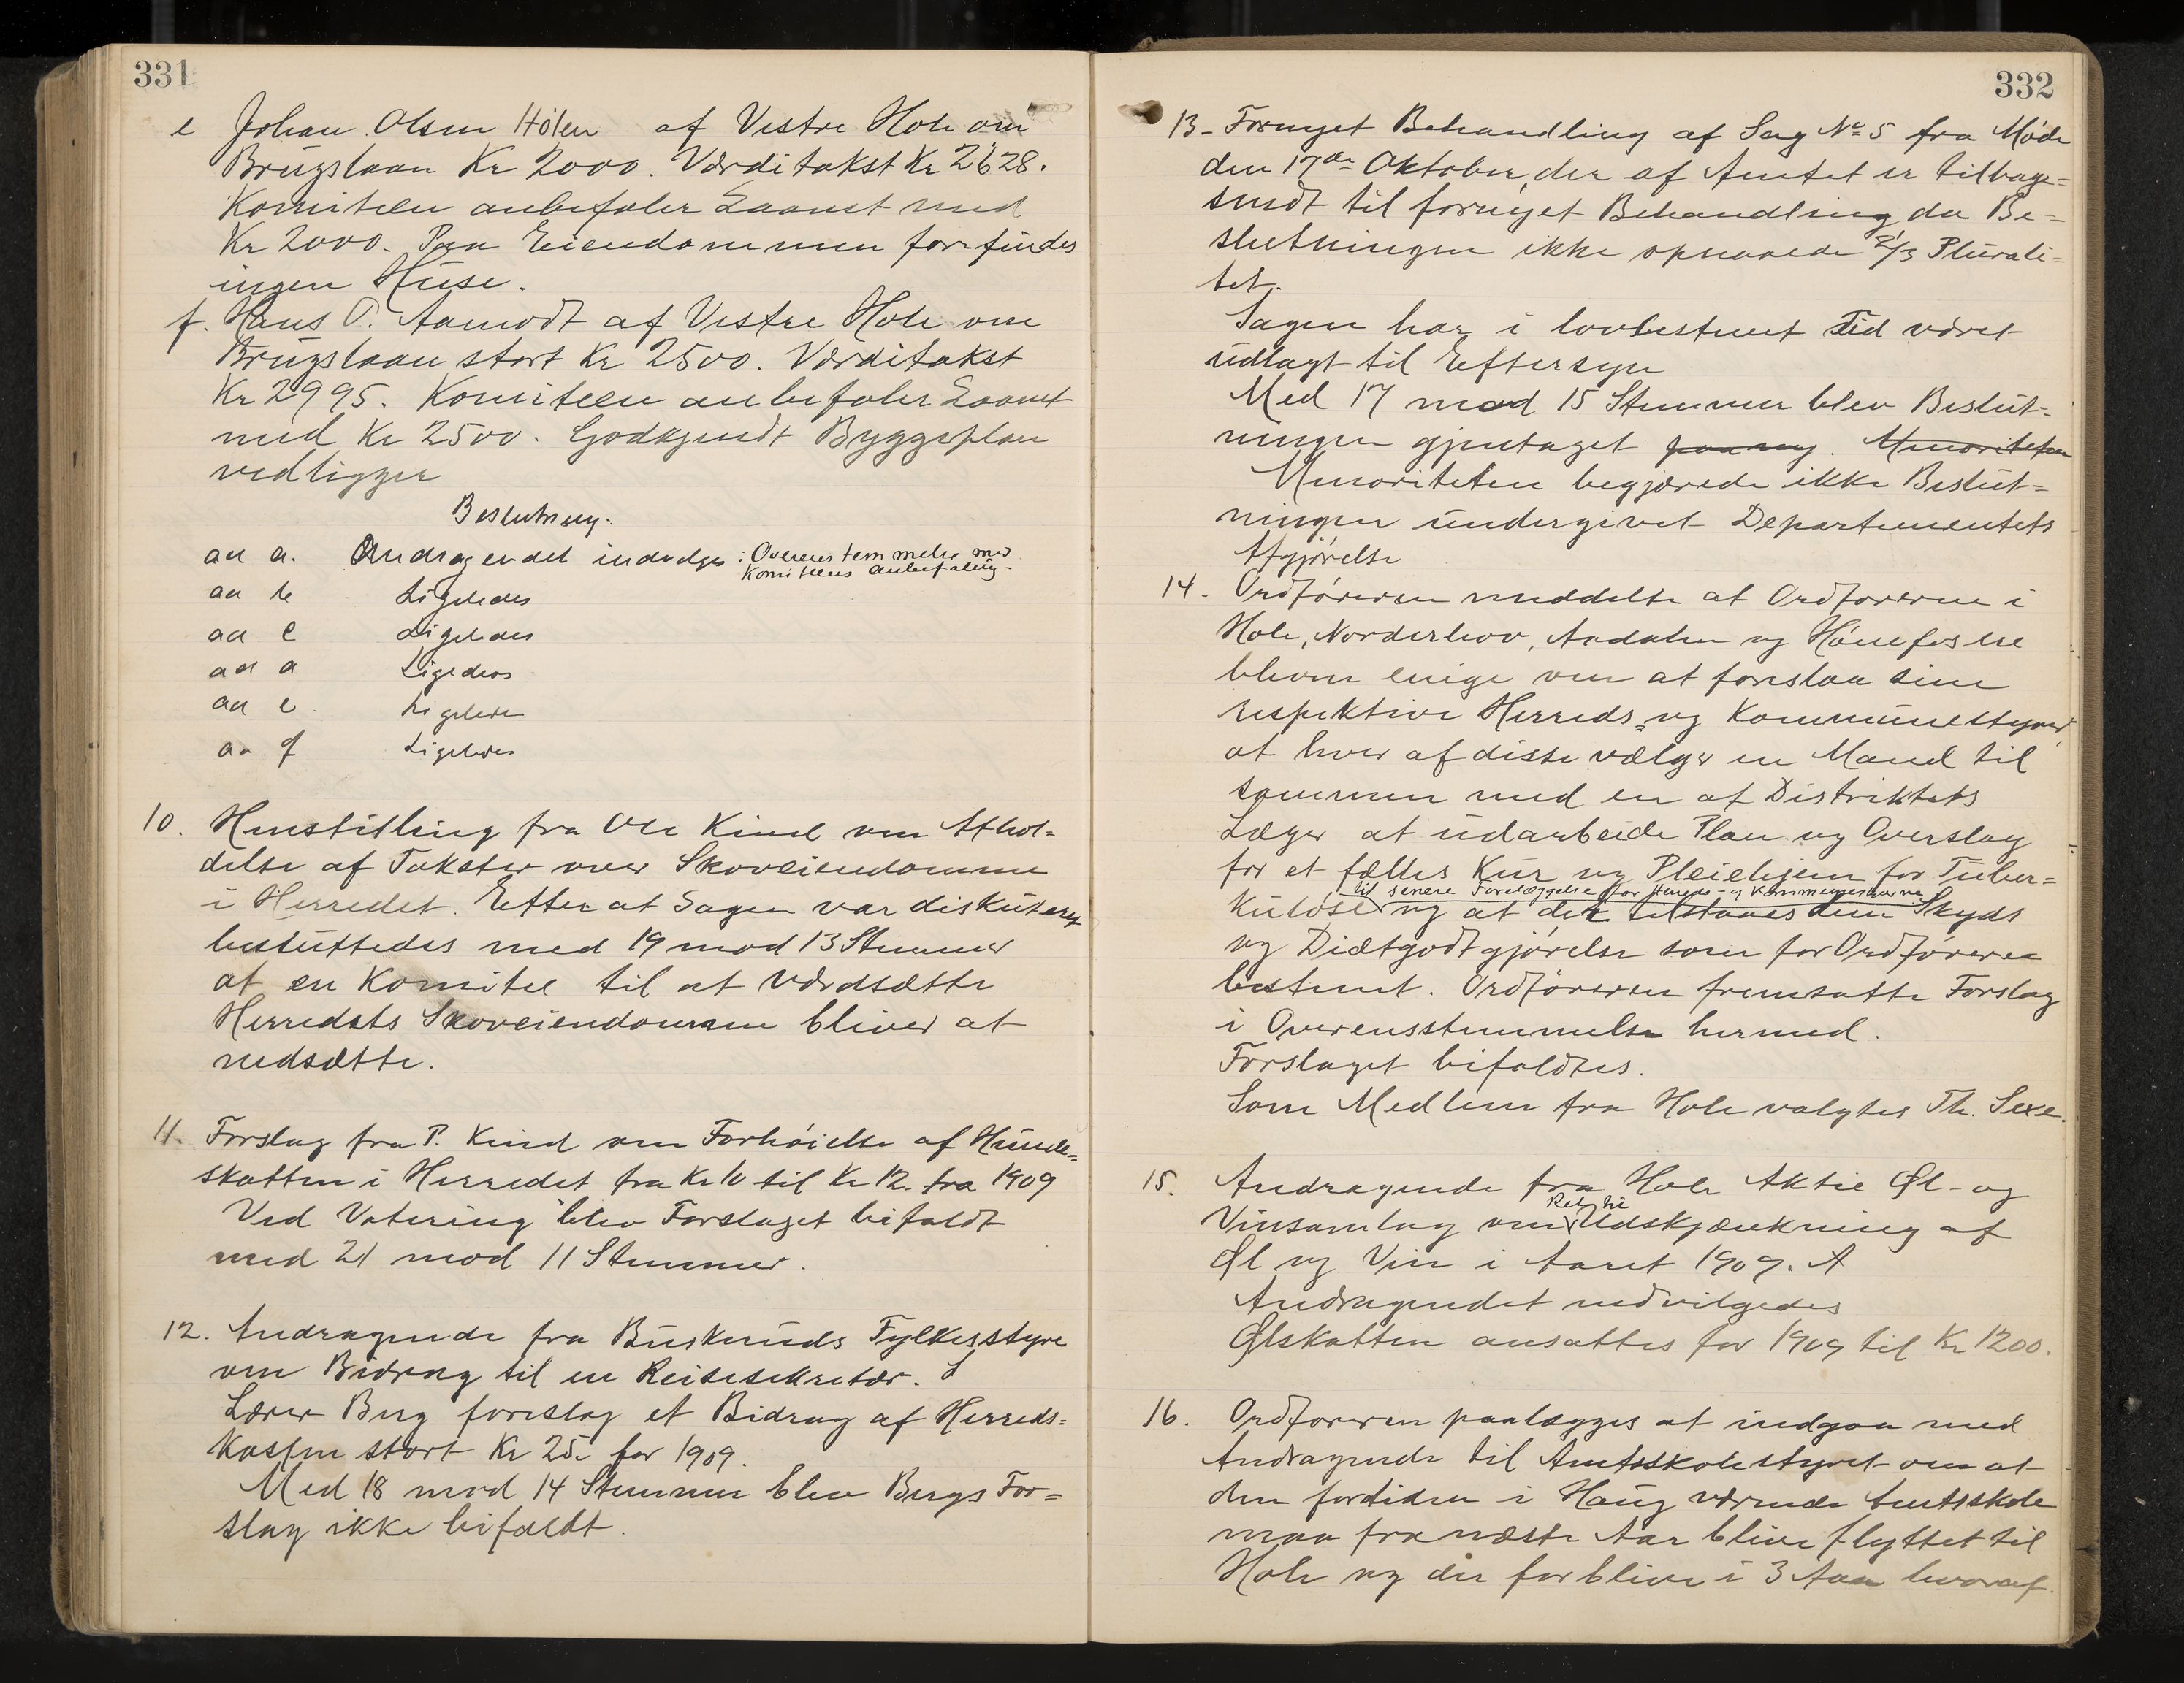 331
e Johan Olsen Hölen af Vestre Hole om
Brugslaan Kr 2000. Værditakst Kr 2628.
Komiteen anbefaler Laanet med
Kr 2000. Paa Eiendommen forefindes
ingen Huse.
f. Hans O. Aamodt af Vestre Hole om
Brugslaan stort Kr 2500. Værditakst
Kr 2995. Komiteen anbefaler Laanet
med Kr 2500. Godkjendt Byggeplan
vedligger
Beslutning:
ad a. Andragendet indvilges i Overenstemmelse med
Komiteens anbefaling.
ad b Ligeledes
ad c Ligeledes
ad d Ligeledes
ad e Ligeledes
ad f Ligeledes
10. Henstilling fra Ole Kind om Afhol=
delse af Takster over Skoveiendomme
i Herredet. Efter at Sagen var diskuteret
besluttedes med 19 mod 13 Stemmer
at en Komite til at værdsætte
Herredets Skoveiendomme bliver at
nedsætte.
11. Forslag fra P. Kind om Forhöielse af Hunde=
skatten i Herredet fra Kr 10 til Kr 12. fra 1909
Ved Votering blev Forslaget bifaldt
med 21 mod 11 Stemmer.
12. Andragende fra Buskeruds Fylkesstyre
om Bidrag til en Reisesekretær. L
Lærer Berg foreslog et Bidrag af Herreds=
kassen stort Kr 25. for 1909.
Med 18 mod 14 Stemmer blev Bergs For=
slag ikke bifaldt.
332
13. Fornyet Behandling af Sag No 5 fra Möde
den 17de Oktober, der af Amtet er tilbage=
sendt til fornyet Behandling, da Be=
slutningen ikke opnaaede 2/3 Plurali=
tet.
Sagen har i lovbestemt Tid været
udlagt til Eftersyn
Med 17 mod 15 Stemmer blev Beslut=
ningen gjentaget paa ny. Minoriteten
Minoriteten begjærede ikke Beslut=
ningen undergivet Departementets
Afgjörelse
14. Ordföreren meddelte at Ordförerne i
Hole, Norderhov, Aadalen og Hönefos ere
blevne enige om at foreslaa sine
respektive Herreds= og Kommunestyrer,
at hver af disse vælger en Mand til
sammen med en af Distriktets
Læger at udarbeide Plan og Overslag
for et fælles Kur og Pleiehjem for Tuber=
til senere Forelæggelse for Herreds- og Kommunestyrerne
kulöse og at der tilstaaes dem Skyds
og Diætgodtgjörelse som for Ordförerne
bestemt. Ordföreren fremsatte Forslag
i Overensstemmelse hermed.
Forslaget bifaldtes.
Som Medlem fra Hole valgtes Th. Sexe.
15. Andragende fra Hole Aktie Øl- og
Ret til
Vinsamlag om Udskjænkning af
Øl og Vin i Aaret 1909. A
Andragendet indvilgedes
Ølskatten ansattes for 1909 til Kr 1200.
16. Ordföreren paalægges at indgaa med
Andragende til Amtsskolestyret om at
den fortiden i Haug værende Amtsskole
maa fra næste Aar blive flyttet til
Hole og der forblive i 3 Aar hvoraf